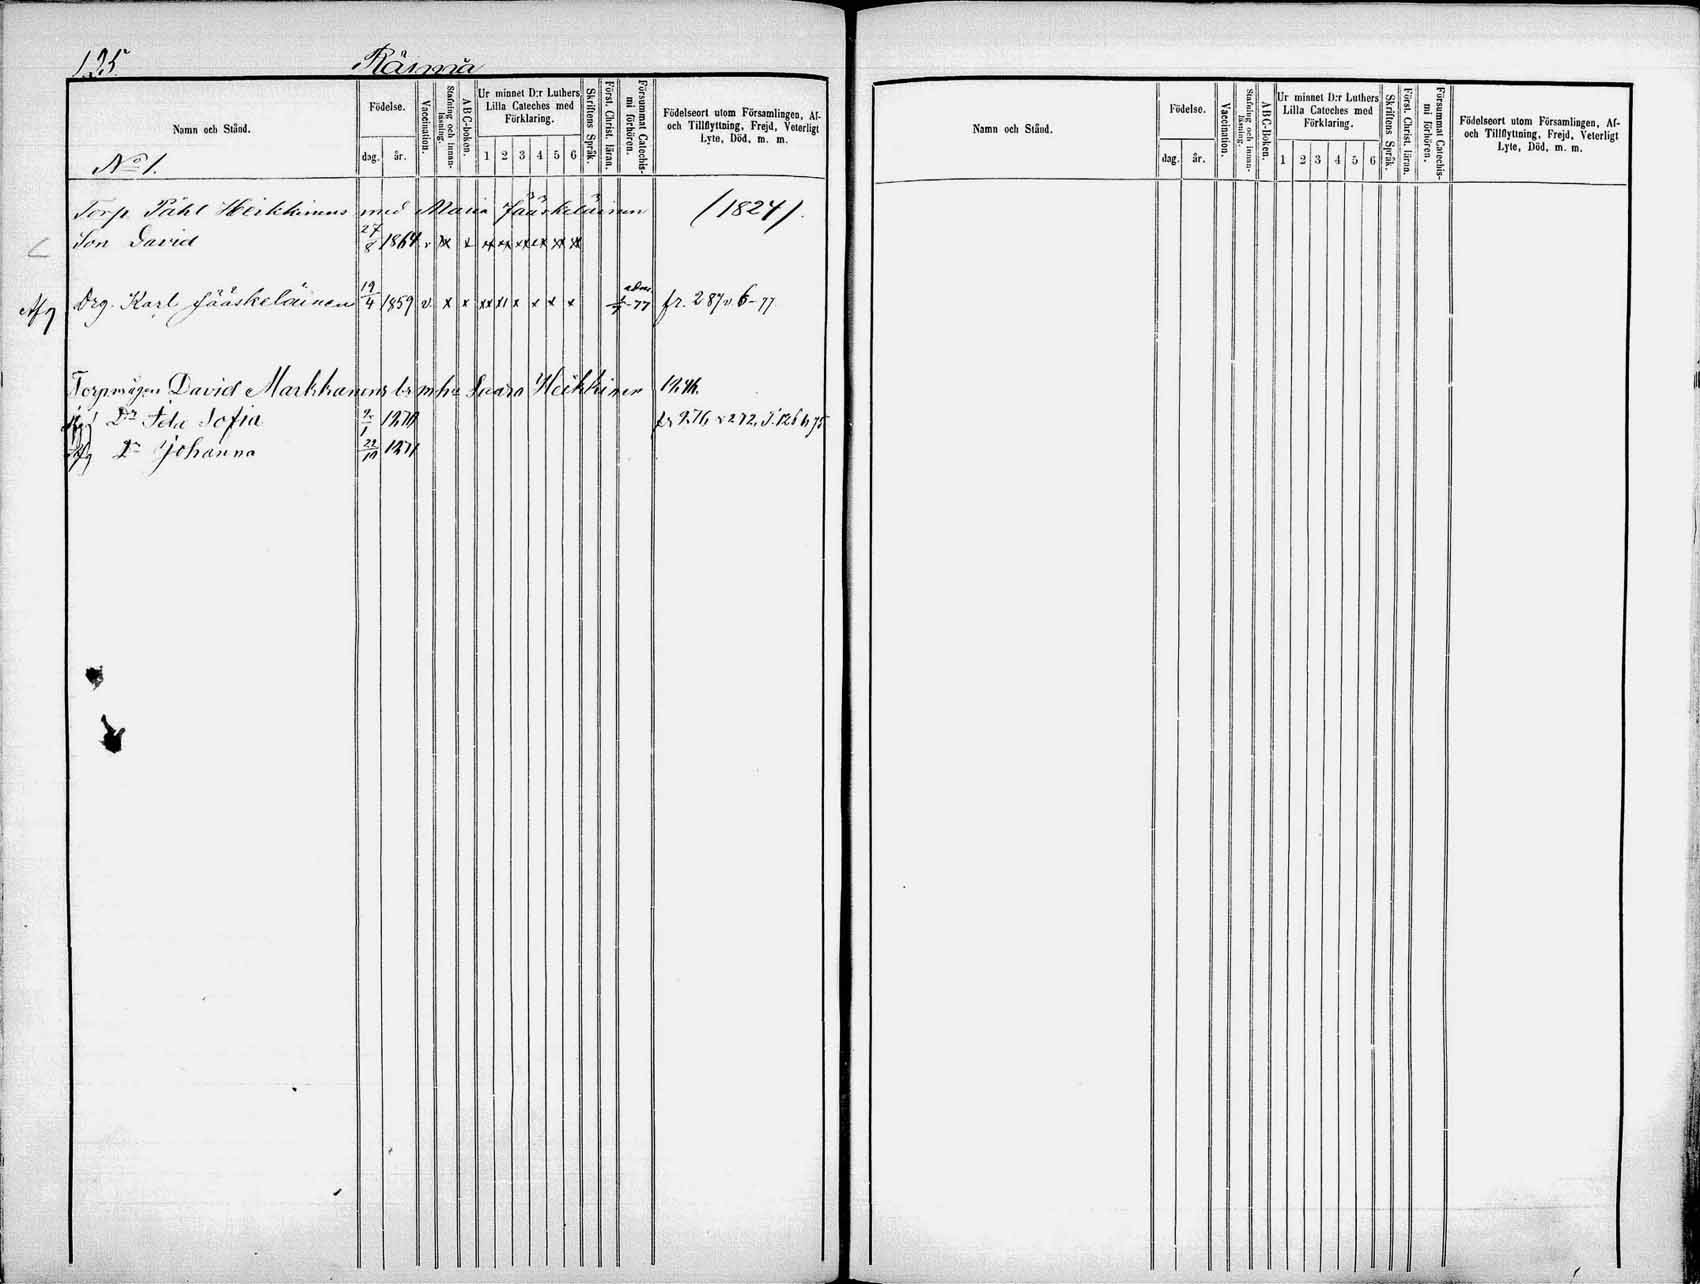 125.
Räimä
Namn och Stånd.
Födelse.
dag. år.
Vaccination.
Stafning och innanläsning.
ABC-boken.
Ur minnet D:r Luthers Lilla Cateches med Förklaring.
1 2 3 4 5 6
Skriftens Språk.
Först. Christ. läran.
Försummat Catechismi förhören.
Födelseort utom Församlingen, Af- och Tillflyttning, Frejd, Veterligt Lyte, Död, m. m.
No 1.
Torp Påhl Heikkinens med Maria Jääskeläinen (1824).
Son David 27/8 1864 v x x xx xx xx xx xx xx
Afg Drg. Karl Jääskeläinen 19/4 1859 v. x x xx xx x x x x adm. -77 fr. 287 v 6-77
Torpmågen David Markkanens br mhu Saara Heikkinen 1846.
Dr Ida Sofia 1870
Afg Dr Johanna 22/10 1871
Namn och Stånd.
Födelse.
dag. år.
Vaccination.
Stafning och innanläsning.
ABC-Boken.
Ur minnet D:r Luthers Lilla Cateches med Förklaring.
1 2 3 4 5 6
Skriftens Språk.
Först. Christ. läran.
Försummat Catechismi förhören.
Födelseort utom Församlingen, Af- och Tillflyttning, Frejd, Veterligt Lyte, Död, m. m.